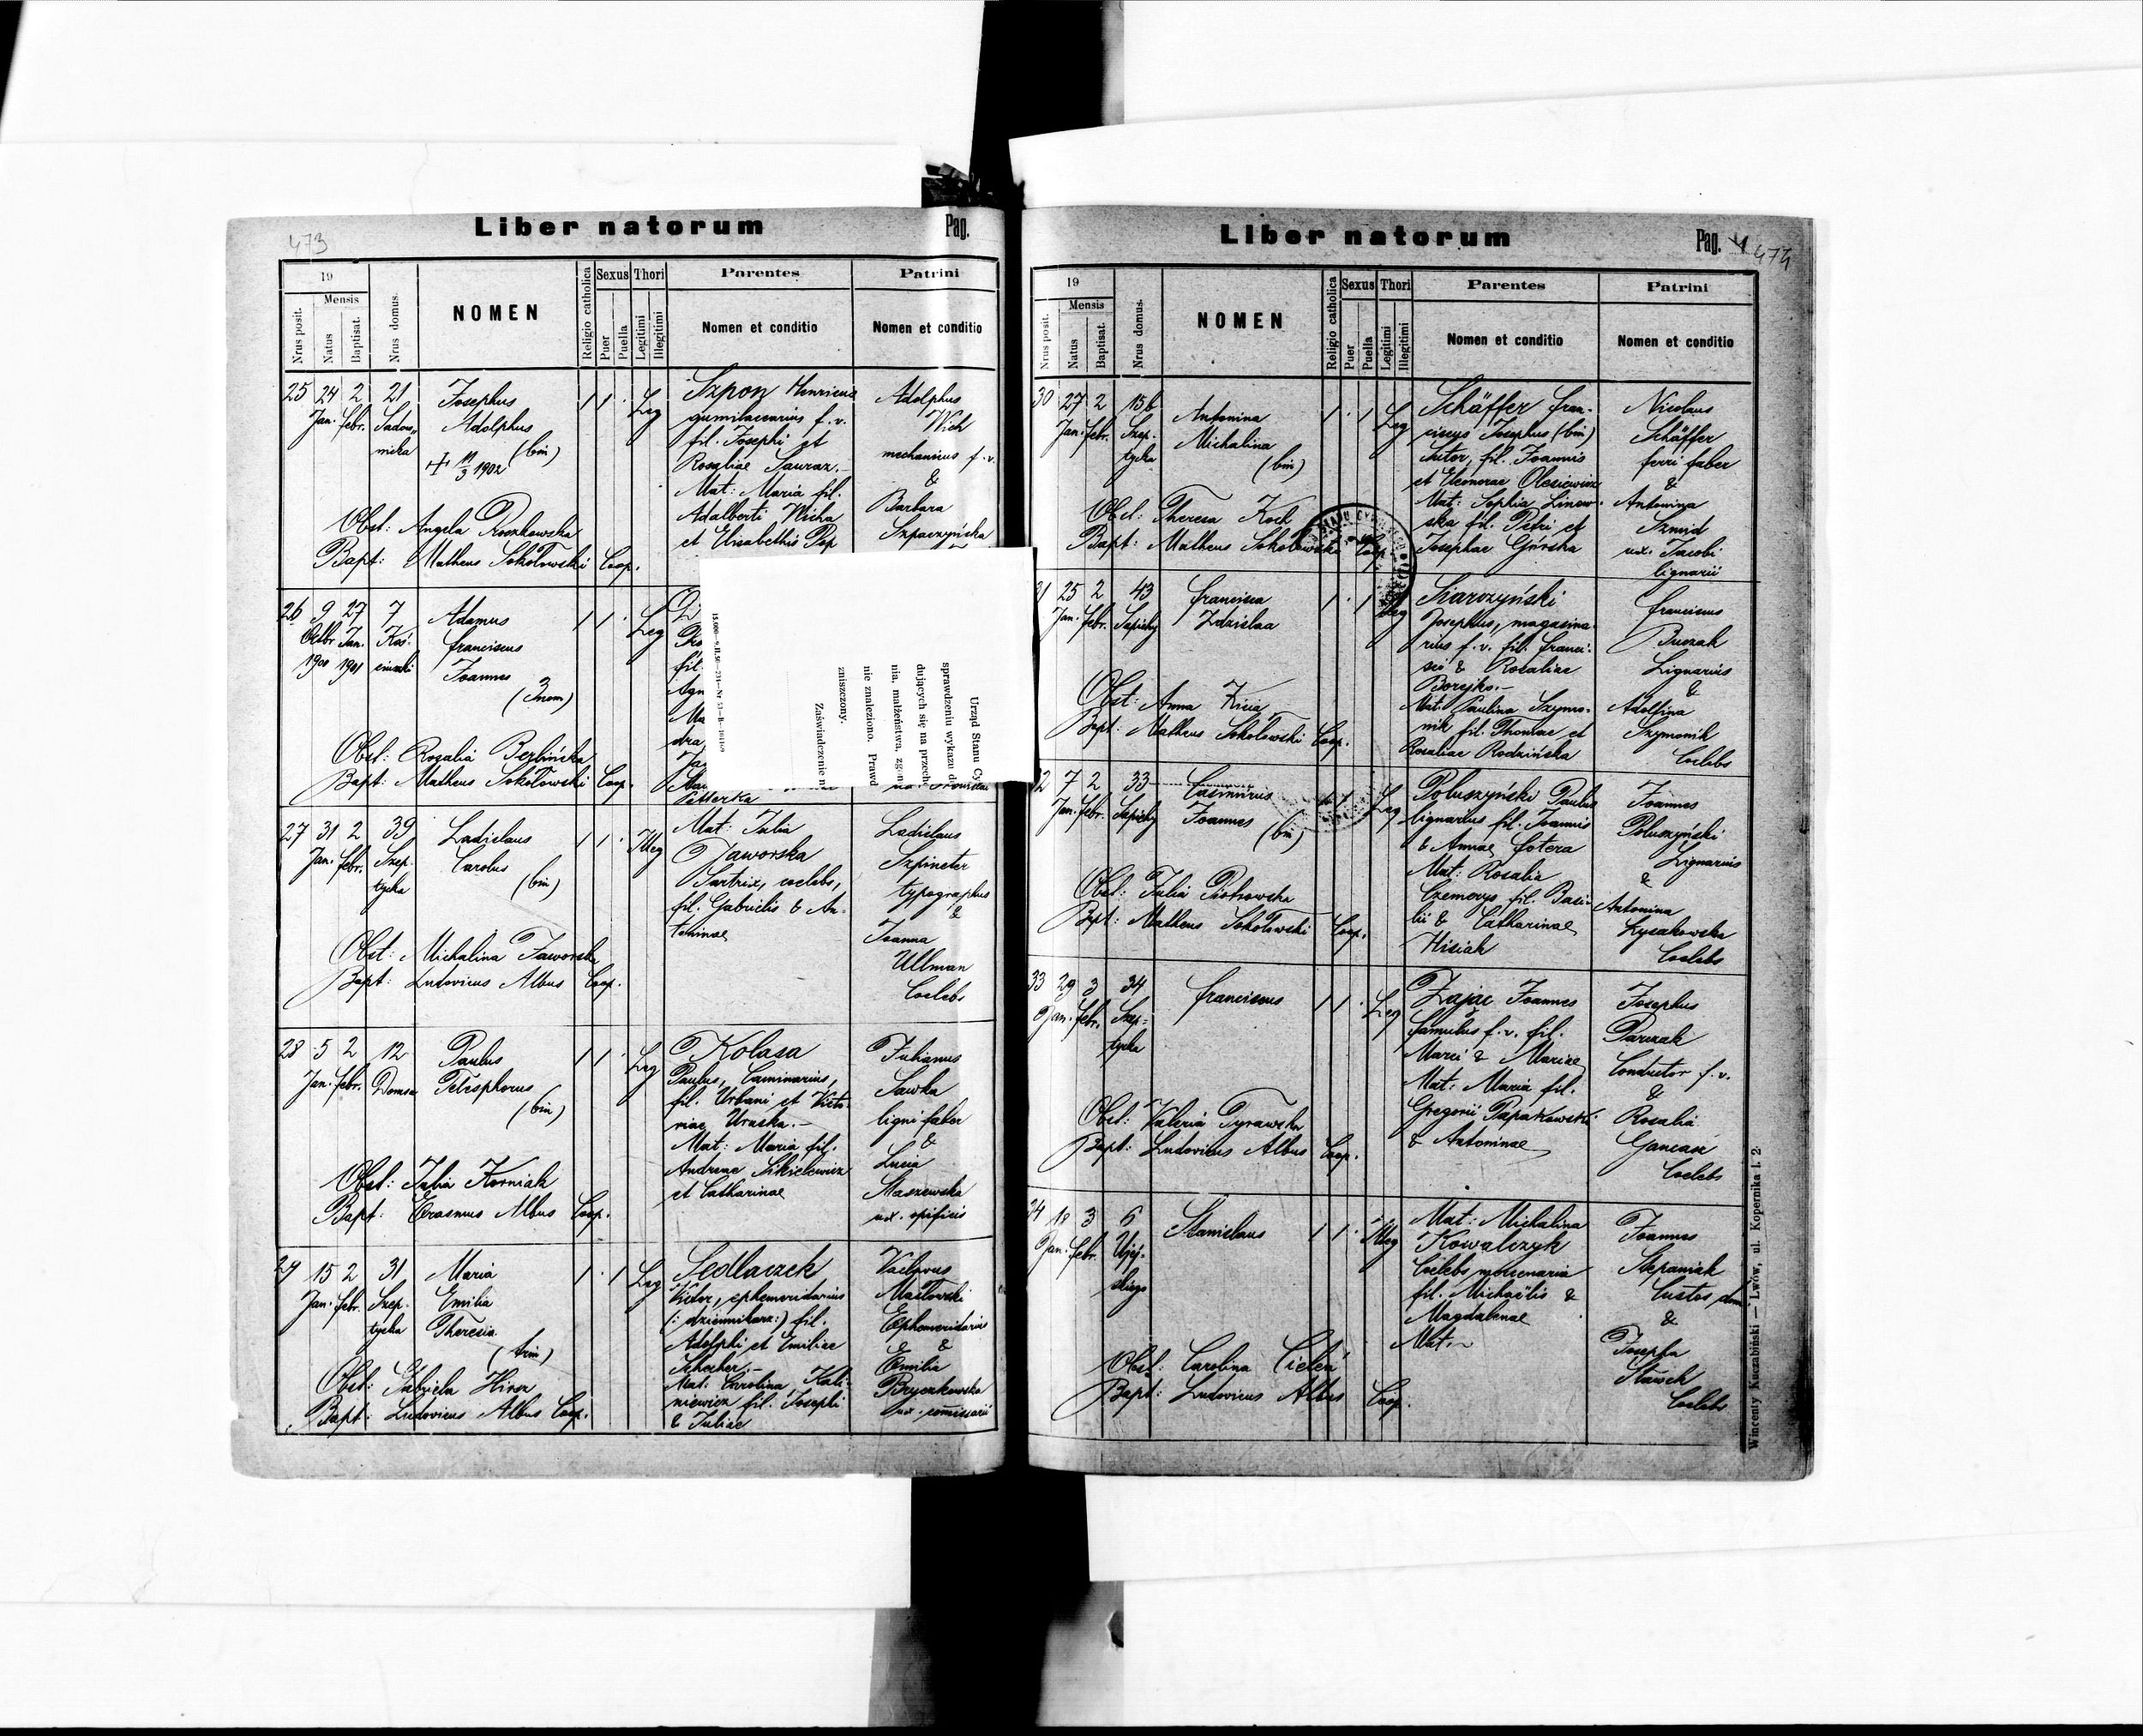 473
Liber natorum
Pag.
19
Mensis
Nrus posit.
Natus
Baptisat.
Nrus domus.
NOMEN
Religio catholica
Sexus
Puer
Puella
Thori
Legitimi
Illegitimi
Parentes
Nomen et conditio
Patrini
Nomen et conditio
25 24 2 21
Jan. febr. Sadow„
mika
Josephus
Adolphus
(bin)
+ 11/3 1902
Leg
Szpon Henricus
gumilaccarius f. v.
fil. Josephi et
Rosaliae Sauraz.–
Mat: Maria fil.
Adalberti Wicha
et Elisabethis Pop
Adolphus
Wich
mechanicus f. v.
&
Barbara
Szpaczyńska
Obst: Angela Roszkowska
Bapt: Matheus Sokołowski Coop.
26 9 27 7
Octbr. Jan.
1900 1901
Adamus
Franciscus
Joannes
(3 nom)
Leg
fil.
Agn
Ma
dra
Petterka
Obst: Rosalia Berlińska
Bapt: Matheus Sokołowski Coop.
Urząd Stanu Cy
sprawdzeniu wykazu d
dujących się na przech
nia, małżeństwa, zgon
nie znaleziono. Prawd
zniszczony.
Zaświadczenie n
27 31 2 39
Jan. febr. Szep-
tycka
Ladislaus
Carolus
(bin)
Illeg
Mat: Julia
Jaworska
Sartrix, coelebs,
fil. Gabrielis & An-
toninae
Ladislaus
Szpineter
typographus
&
Joanna
Ullman
Coelebs
Obst: Michalina Jaworska
Bapt: Ludovicus Albus Coop.
28 5 2 12
Jan. febr. Domsa
Paulus
Telesphorus
(bin)
Leg
Kolasa
Paulus, Caminarius,
fil. Urbani et Victo-
riae Uruska.–
Mat: Maria fil.
Andreae Sikielewicz
et Catharinae
Julianus
Sawka
ligni faber
&
Lucia
Staszewska
ux. opificis
Obst: Julia Korniak
Bapt: Erasmus Albus Coop.
29 15 2 31
Jan. febr. Szep-
tycka
Maria
Emilia
Theresia
(trin)
Leg
Sedlaczek
Victor, ephemeridarius
(: dziennikarz:) fil.
Adolphi et Emiliae
Mat: Carolina Kali-
niewicz fil. Josephi
& Juliae
Vaclavus
Masłowski
Ephemeridarius
&
Emilia
Bryczkowska
ux. comissarii
Obst: Gabriela Hirsz
Bapt: Ludovicus Albus Coop.
Liber natorum
Pag.
474
19
Mensis
Nrus posit.
Natus
Baptisat.
Nrus domus.
NOMEN
Religio catholica
Sexus
Puer
Puella
Thori
Legitimi
Illegitimi
Parentes
Nomen et conditio
Patrini
Nomen et conditio
30 27 2 15b
Jan. febr. Szep-
tycka
Antonina
Michalina
(bin)
Leg
Schäffer Fran-
ciscus Josephus (bin)
Sutor, fil. Joannis
et Eleonorae Olesiewicz
Mat: Sophia Linow-
ska fil. Petri et
Josephae Górska
Nicolaus
Schäffer
ferri faber
&
Antonina
Szmid
ux. Jacobi
lignarii
Obst: Theresa Koch
Bapt: Matheus Sokołowski Coop.
31 25 2 43
Jan. febr. Sapiehy
Francisca
Zdzislaa
Leg
Skarczyński
Josephus, magazina-
rius f. v. fil. Franci-
sci & Rosaliae
Borejko.–
Mat: Paulina Szymo-
nik fil. Thomae et
Rosaliae Rodzińska
Franciscus
Buczak
Lignarius
&
Adolfina
Szymonik
Coelebs
Obst: Anna Kicia
Bapt: Matheus Sokołowski Coop.
32 7 2 33
Jan. febr. Sapiehy
Casimirus
Joannes
(bin)
Leg
Poluszyński Paulus
lignarius fil. Joannis
& Annae Fotera
Mat: Rosalia
Czemerys fil. Basi-
lii & Catharinae
Hisiak
Joannes
Poluszyński
Lignarius
&
Antonina
Łysakowska
Coelebs
Obst: Julia Piotrowska
Bapt: Matheus Sokołowski Coop.
33 29 3 34
Jan. febr. Szep-
tycka
Franciscus
Leg
Zając Joannes
famulus f. v. fil.
Marci & Mariae
Mat: Maria fil.
Gregorii Papakowski
& Antoninae
Josephus
Parczak
Conductor f. v.
&
Rosalia
Gancarz
Coelebs
Obst: Valeria Tyrawska
Bapt: Ludovicus Albus Coop.
34 18 3 6
Jan. febr. Ujej-
skiego
Stanislaus
Illeg
Mat: Michalina
Kowalczyk
Coelebs mercenaria
fil. Michaëlis &
Magdalenae
Mat.
Joannes
Stepaniak
Custos dom.
&
Josepha
Stawek
Coelebs
Obst: Carolina Cieleń
Bapt: Ludovicus Albus Coop.
Wincenty Kuczabiński — Lwów, ul. Kopernika l. 2.